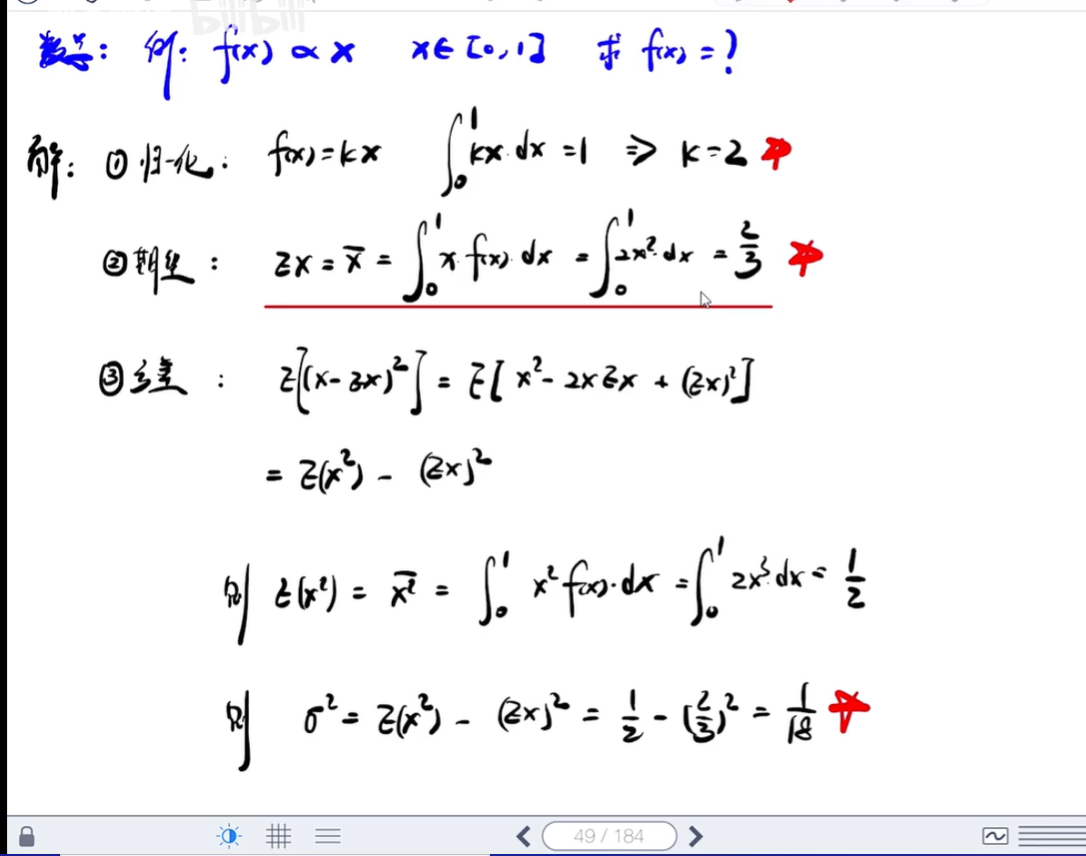 bilibili
数学: 例: f(x) ∝ x x∈[0,1] 求 f(x)=?
解: ① 归一化: f(x)=kx ∫₀¹ kx·dx =1 ⇒ k=2
② 期望: Ex = x̄ = ∫₀¹ x·f(x)·dx = ∫₀¹ 2x²·dx = 2/3
③ 方差: E[(x-Ex)²] = E[x²-2xEx+(Ex)²]
= E(x²) - (Ex)²
则 E(x²) = x̄² = ∫₀¹ x²f(x)·dx = ∫₀¹ 2x³·dx = 1/2
则 σ² = E(x²) - (Ex)² = 1/2 - (2/3)² = 1/18
49 / 184